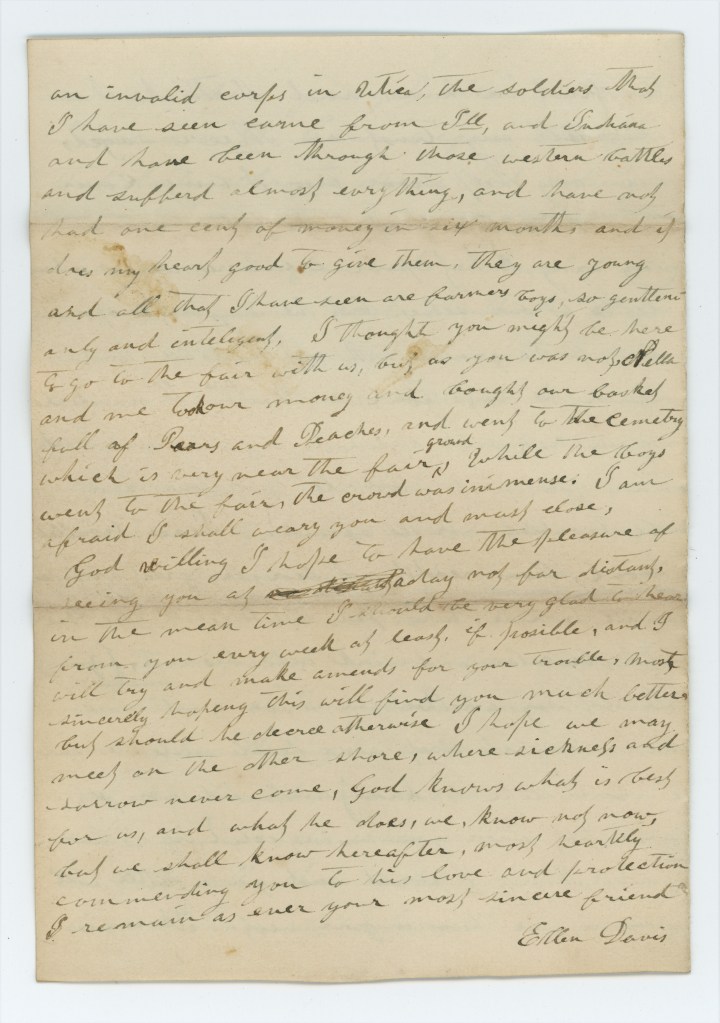 an invalid corps in Utica, the soldiers that
I have seen came from Ill, and Indiana
and have been through those western battles
and sufferd almost evrything, and have not
had one cent of money in six months and it
does my heart good to give them, they are young
and all that I have seen are farmers boys, so gentlem
anly and inteligent, I thought you might be here
to go to the fair with us, but as you was not Pella
and me took our money and bought our basket
full of Pears and Peaches, and went to the cemetry
which is very near the fair ground, While the boys
went to the fair, the crowd was inmense; I am
afraid I shall weary you and must close,
God willing I hope to have the pleasure of
seeing you at a day not far distant,
in the mean time I should be very glad to hear
from you every week at least, if posible, and I
will try and make amends for your trouble, most
sincerely hopeing this will find you much better
but should he decree otherwise I hope we may
meet on the other shore, where sickness and
sorrow never come, God knows what is best
for us, and what he does, we, know not now,
but we shall know hereafter, most heartily
commending you to his love and protection
I remain as ever your most sincere friend
Ellen Davis